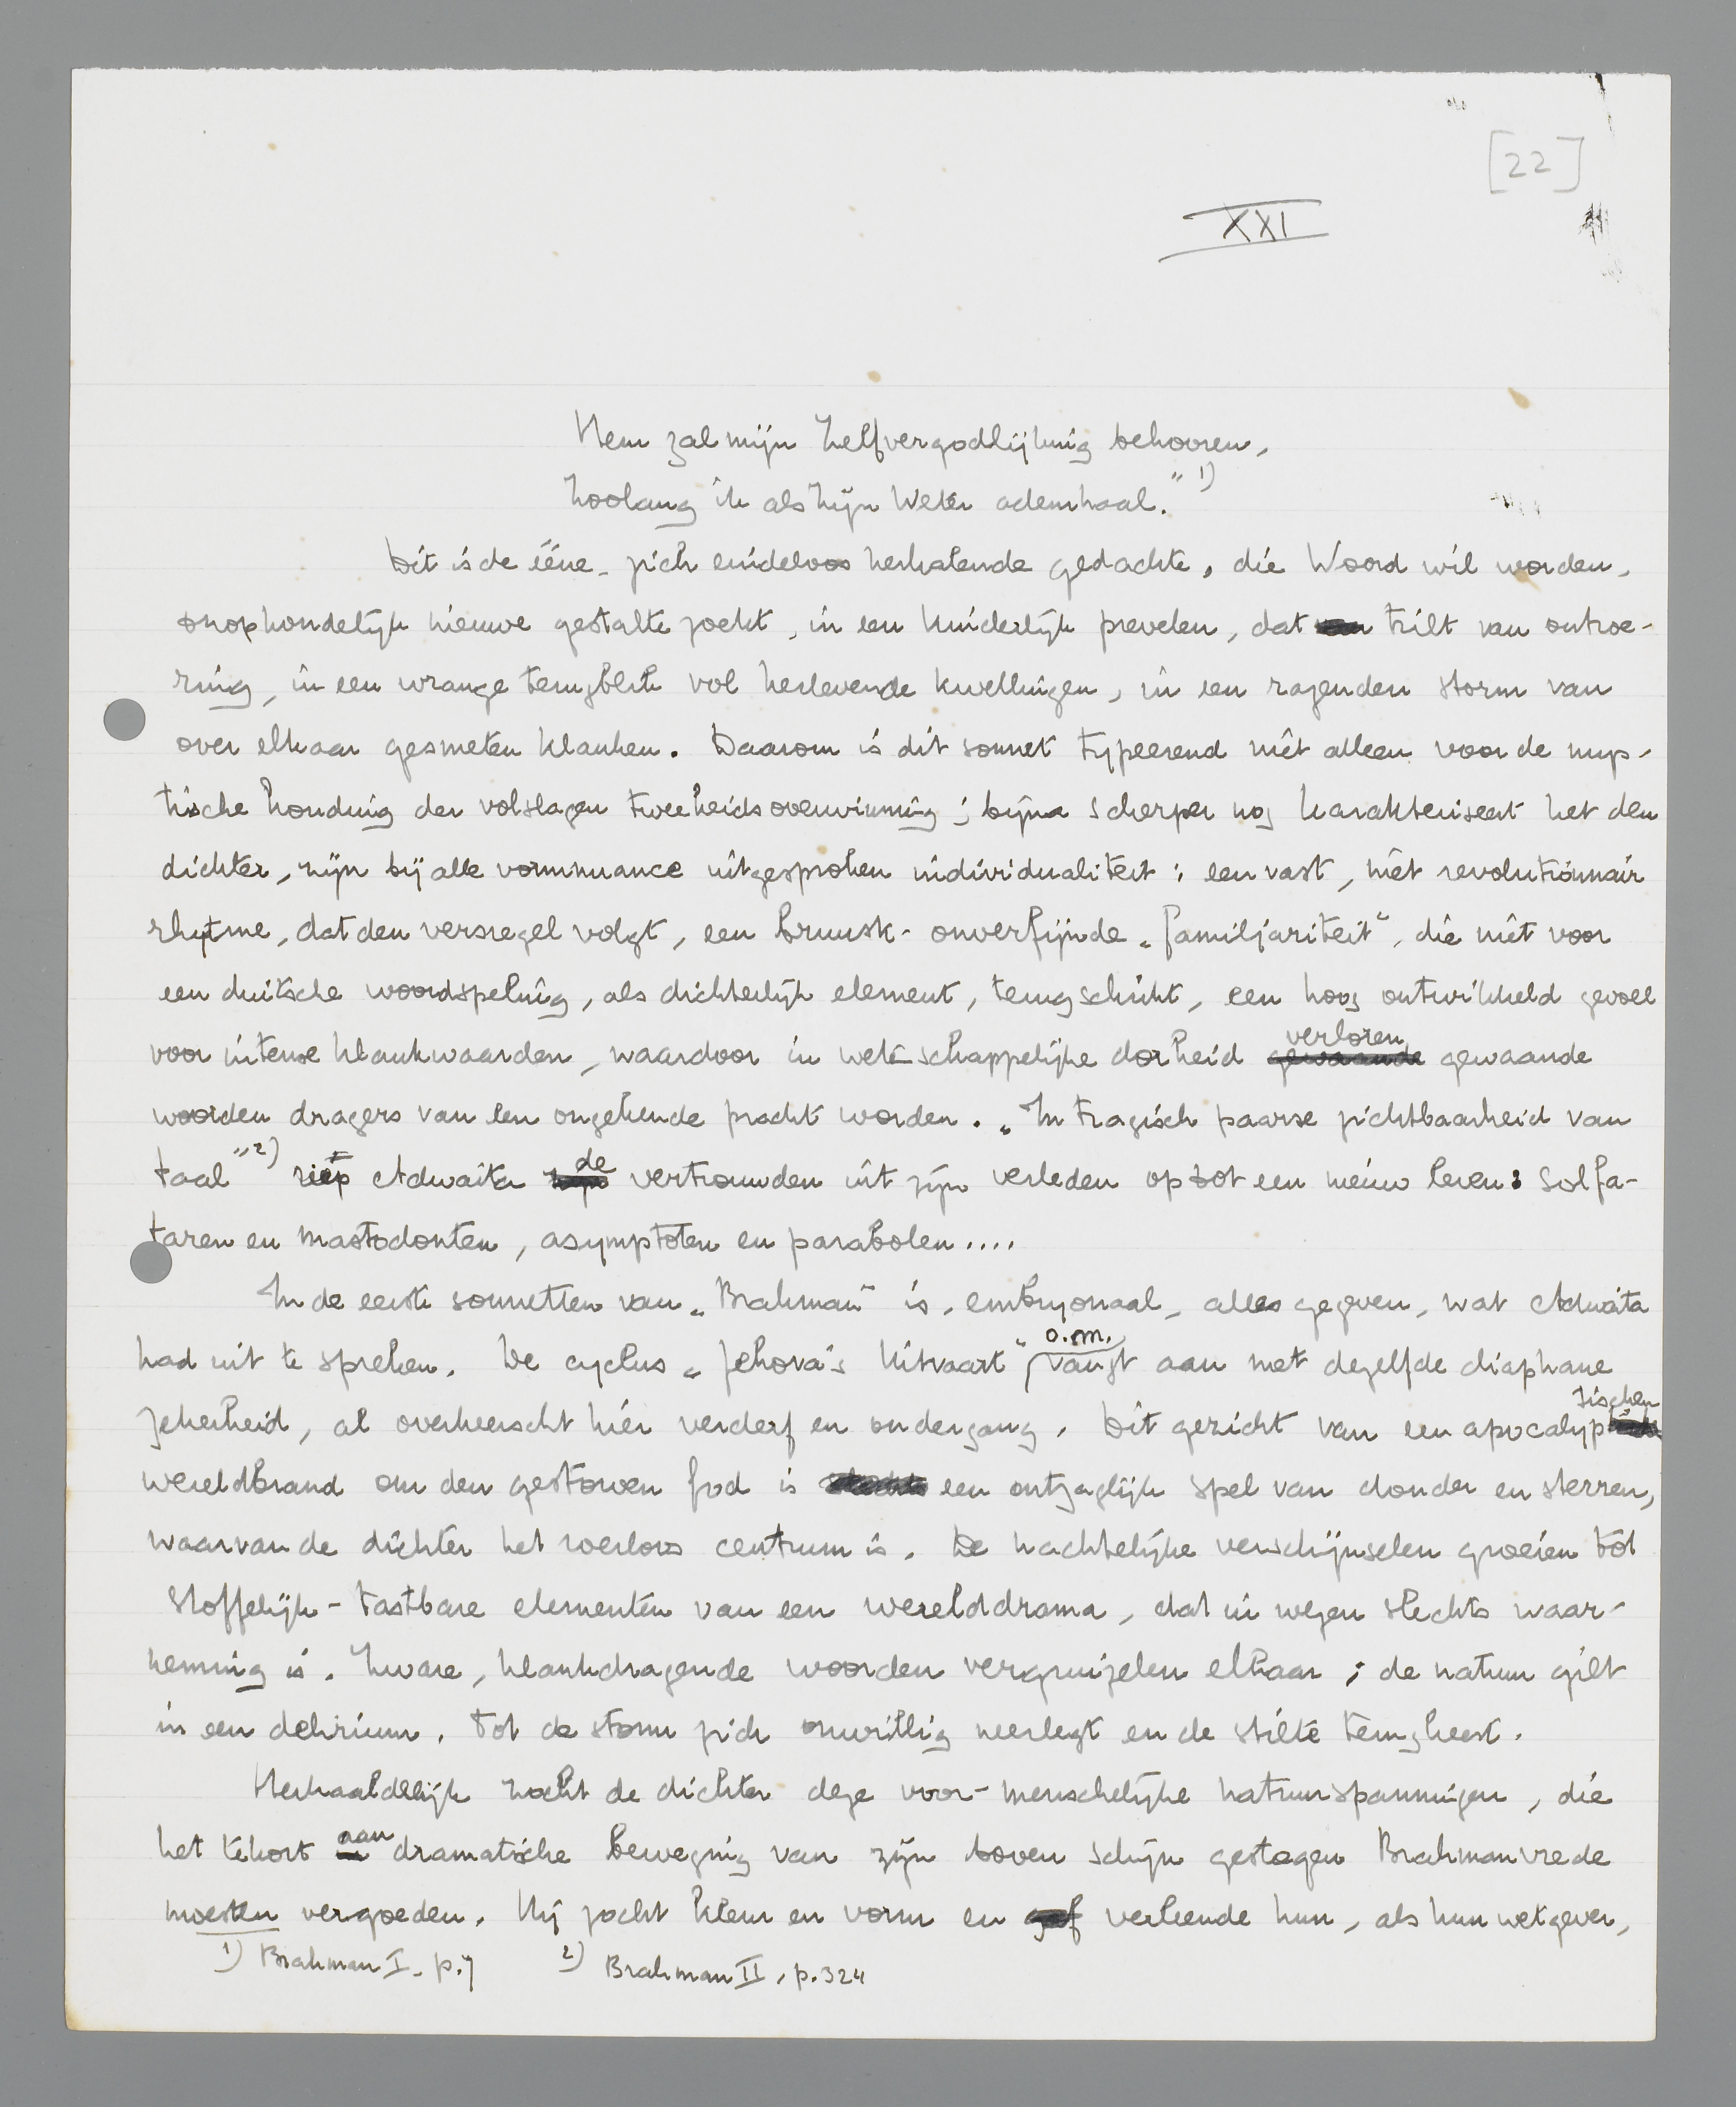 [22]
XXI
Hem zal mijn Zelfvergodlijking behooren,
Zoolang ik als Zijn Weter ademhaal." 1)
Dit is de ééne, zich eindeloos herhalende gedachte, die Woord wil worden,
onophoudelijk nieuwe gestalte zoekt, in een kinderlijk prevelen, dat trilt van ontroe-
ring, in een wrange terugblik vol herlevende kwellingen, in een razenden storm van
over elkaar gesmeten klanken. Daarom is dit sonnet typeerend niet alleen voor de mys-
tische houding der volslagen tweeheidsoverwinning; bijna scherper nog karakteriseert het den
dichter, zijn bij alle vormnuance uitgesproken individualiteit: een vast, niet revolutionnair
rhytme, dat den versregel volgt, een bruusk-onverfijnde „familjariteit", die niet voor
een duitsche woordspeling, als dichterlijk element, terugschrikt, een hoog ontwikkeld gevoel
voor intense klankwaarden, waardoor in wetenschappelijke dorheid gewaande verloren gewaande
woorden dragers van een ongekende pracht worden. „In tragisch paarse zichtbaarheid van
taal" 2) riep Adwaita de vertrouwden uit zijn verleden op tot een nieuw leven: solfa-
taren en mastodonten, asymptoten en parabolen....
In de eerste sonnetten van „Brahman" is, embryonaal, alles gegeven, wat Adwaita
had uit te spreken. De cyclus „Jehova's Uitvaart" o.m. vangt aan met dezelfde diaphane
zekerheid, al overheerscht hier verderf en ondergang. Dit gezicht van een apocalyptischen
wereldbrand om den gestorven God is een ontzaglijk spel van donder en sterren,
waarvan de dichter het roerloos centrum is. De nachtelijke verschijnselen groeien tot
stoffelijk-tastbare elementen van een werelddrama, dat in wezen slechts waar-
neming is. Zware, klankdragende woorden vergruizelen elkaar; de natuur gilt
in een delirium. Tot de storm zich onwillig neerlegt en de stilte terugkeert.
Herhaaldelijk zocht de dichter deze voor-menschelijke natuurspanningen, die
het tekort aan dramatische beweging van zijn boven schijn gestegen Brahmanvrede
moesten vergoeden. Hij zocht kleur en vorm en verleende hun, als hun wetgever,
1) Brahman I, p. 7 2) Brahman II, p. 324